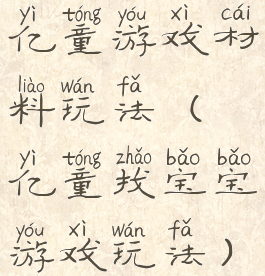 yì tóng yóu xì cái
亿童游戏材
liào wán fǎ
料玩法（
yì tóng zhǎo bǎo bǎo
亿童找宝宝
yóu xì wán fǎ
游戏玩法）